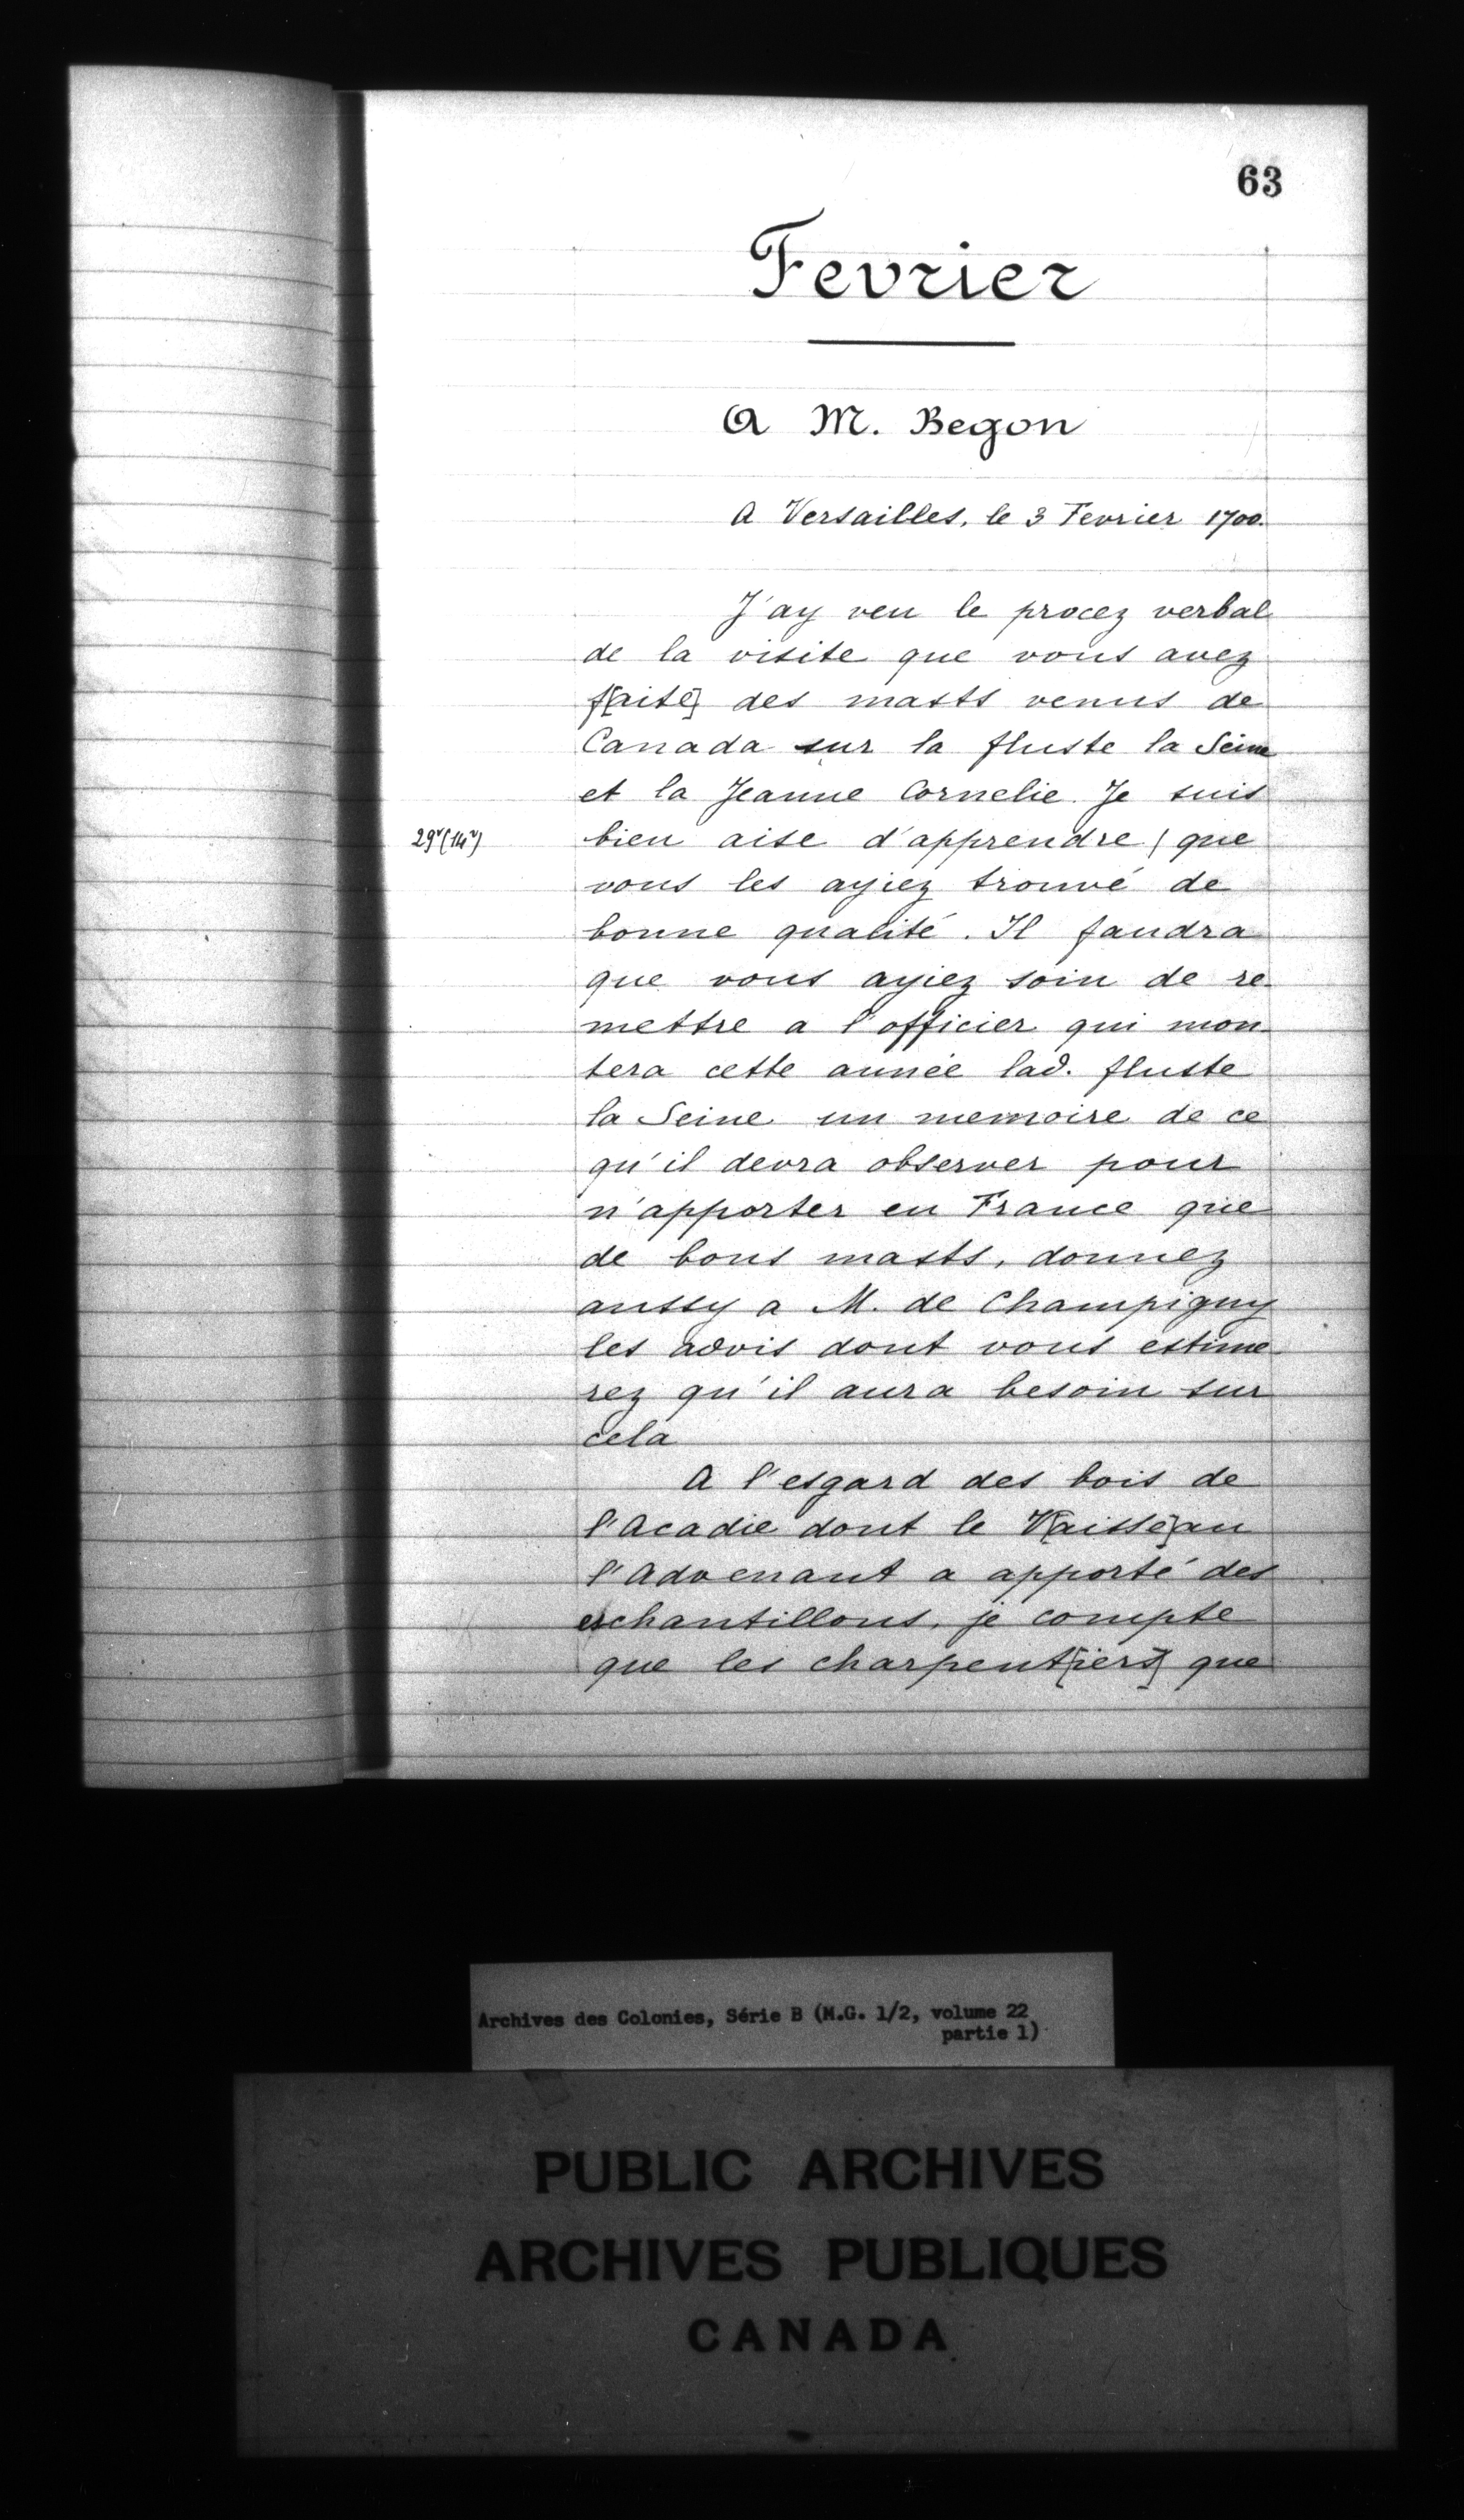 63
Fevrier
A M. Begon
A Versailles, le 3 Fevrier 1700.
J'ay veu le procez verbal
de la visite que vous avez
f[aite] des masts venus de
Canada sur la fluste la Seine
et la Jeanne Cornelie. Je suis
29v (14v) bien aise d'apprendre / que
vous les ayiez trouvé de
bonne qualité. Il faudra
que vous ayiez soin de re-
mettre a l'officier qui mon-
tera cette année lad. fluste
la Seine un memoire de ce
qu'il devra observer pour
n'apporter en France que
de bons masts, donnez
aussy a M. de Champigny
les advis dont vous estime-
rez qu'il aura besoin sur
cela
A l'esgard des bois de
l'Acadie dont le V[aisse]au
l'Advenant a apporté des
eschantillons, je compte
que les charpent[iers] que
Archives des Colonies, Série B (M.G. 1/2, volume 22
partie 1)
PUBLIC ARCHIVES
ARCHIVES PUBLIQUES
CANADA